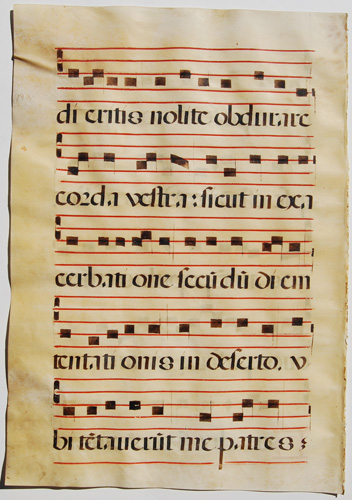 di eritis nolite obdurare
corda vestra : sicut in exa
cerbati one secūdū di em
tentati onis in deserto. v
bi tētaverūt me patres :